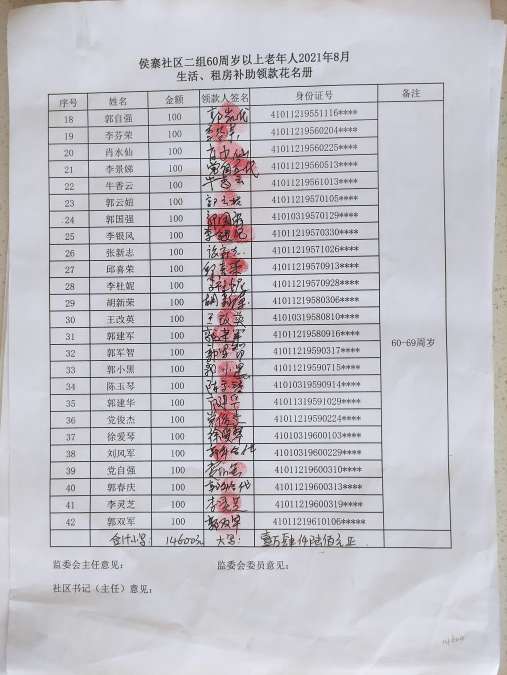 侯寨社区二组60周岁以上老年人2021年8月
生活、租房补助领款花名册
序号 姓名 金额 领款人签名 身份证号 备注
18 郭自强 100 41011219551116****
19 李芬荣 100 41011219560204****
20 肖水仙 100 肖水仙 41011219560225****
21 李景娣 100 41011219560513****
22 牛香云 100 牛香云 41011219561013****
23 郭云妞 100 41011219570105****
24 郭国强 100 郭国强 41010319570129****
25 李银凤 100 李银凤 41011219570330****
26 张新志 100 张新志 41011219571026****
27 邱喜荣 100 邱喜荣 41011219570913****
28 李杜妮 100 41011219570928****
29 胡新荣 100 胡新荣 41011219580306****
30 王改英 100 王改英 41010319580810****
31 郭建军 100 郭建军 41011219580916****
32 郭军智 100 41011219590317****
60-69周岁
33 郭小黑 100 郭小黑 41011219590715****
34 陈玉琴 100 陈玉琴 41010319590914****
35 郭建华 100 41011359591029****
36 党俊杰 100 党俊杰 41011219590224****
37 徐爱琴 100 徐爱琴 41010319600103****
38 刘凤军 100 41010319600229****
39 党自强 100 41011219600310****
40 郭春庆 100 41011219600313****
41 李灵芝 100 李灵芝 41011219600319****
42 郭双军 100 郭双军 41011219610106*****
合计小写: 14600元 大写: 壹万肆仟陆佰元正
监委会主任意见: 监委会委员意见:
社区书记（主任）意见: